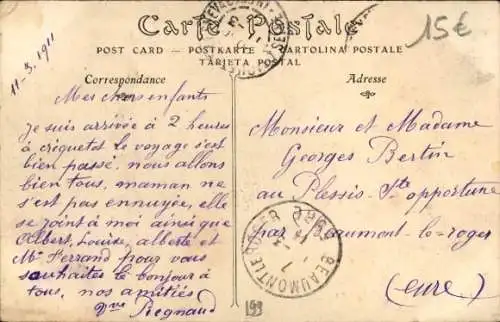 Carte Postale
15€
POST CARD — POSTKARTE — CARTOLINA POSTALE
TARJETA POSTAL
11-3. 1911
Correspondance
Mes chers enfants
Je suis arrivée à 2 heures
à criquetot le voyage s'est
bien passé, nous allons
bien tous, maman ne
s'est pas ennuyée, elle
se joint à moi ainsi que
Albert, Louise, alberte et
Mr Ferrand pour vous
souhaiter le bonjour à
tous, nos amitiés
Vve Regnaud
Adresse
Monsieur et Madame
Georges Bertin
au Plessis Ste opportune
par Beaumont-le-roger
(eure)
BEAUMONT LE ROGER
199